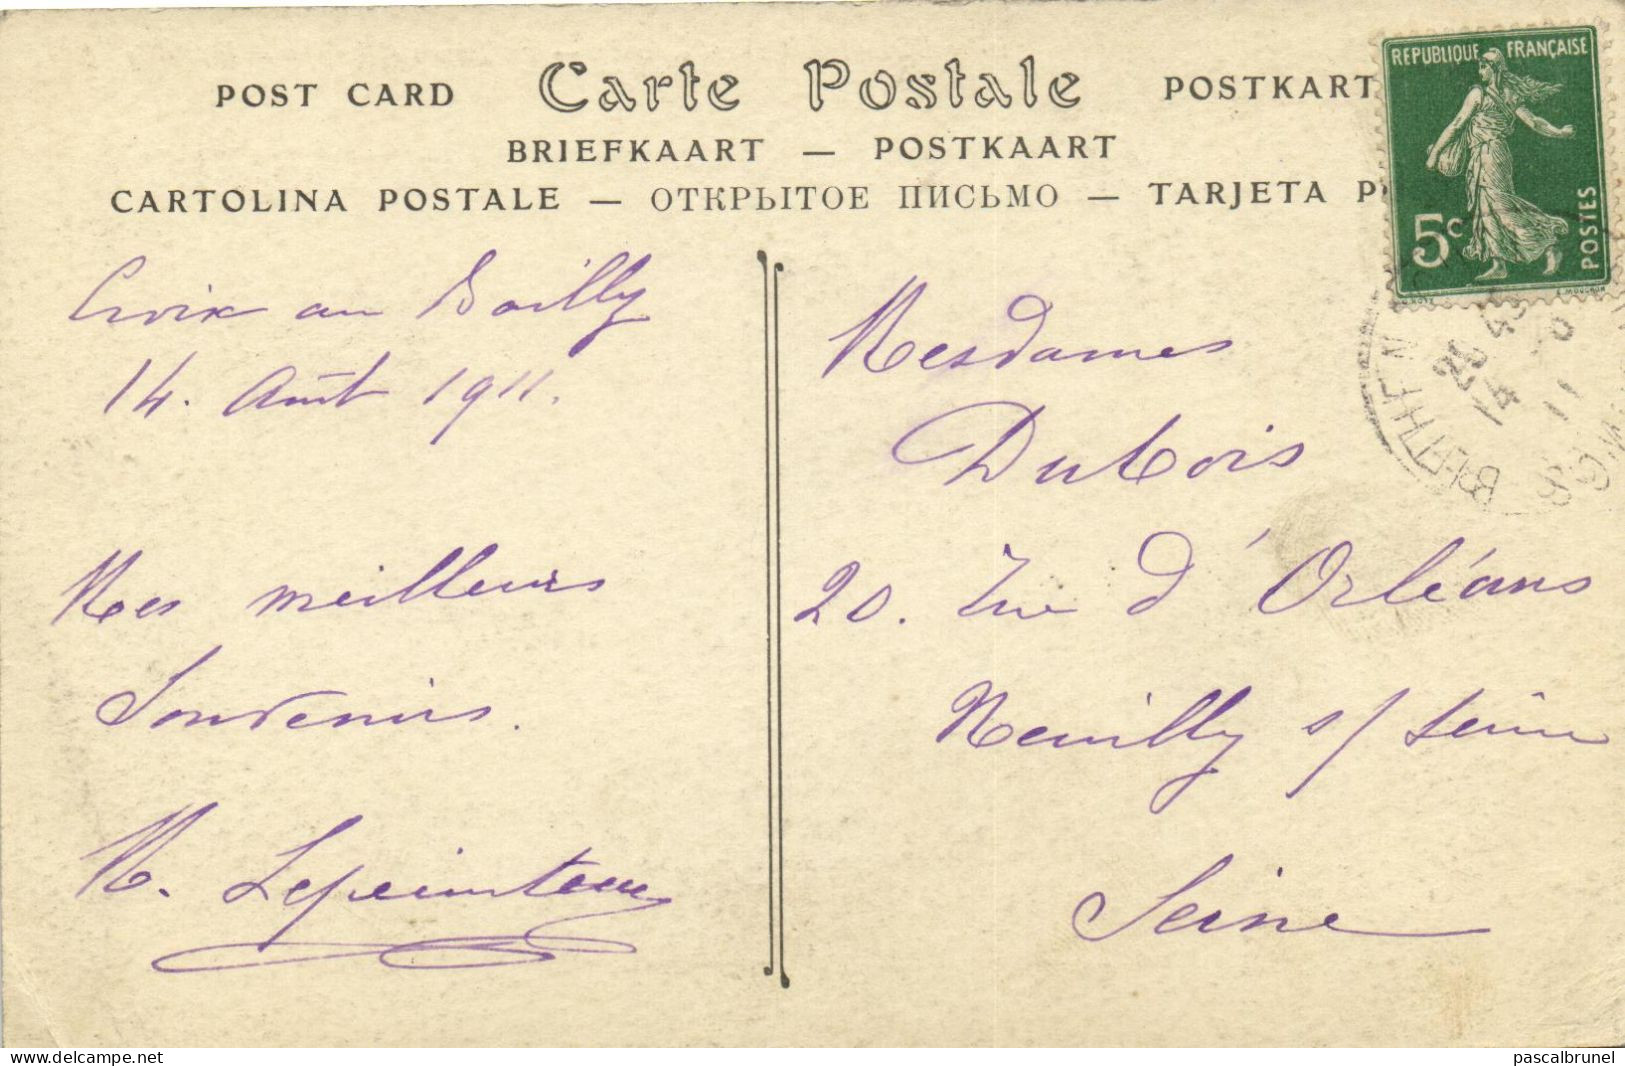 POST CARD Carte Postale POSTKART
BRIEFKAART — POSTKAART
CARTOLINA POSTALE — ОТКРЫТОЕ ПИСЬМО — TARJETA P
REPUBLIQUE FRANÇAISE
5c
POSTES
Croix au Bailly
14. Août 1911.
Mes meilleurs
Souvenirs.
M. Lepeinteur
Mesdames
Dubois
20. rue d'Orléans
Neuilly s/ Seine
Seine
14
11
delcampe.net
pascalbrunel